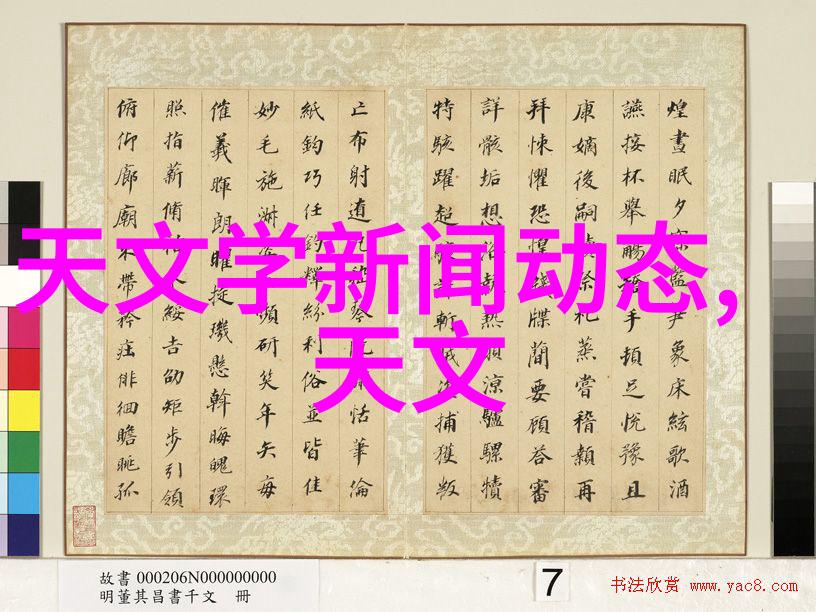 煌晝眠夕寐象床絃歌酒
讌接杯舉觴手頓足悅豫且
康嫡後嗣祭祀蒸嘗稽顙再
拜悚懼恐惶牒簡要顧答審
詳骸垢想浴執熱願涼驢騾犢
特駭躍超斬賊捕獲叛
亡布射遼丸嵇琴阮恬筆倫
紙鈞巧任釣釋紛利俗並皆佳
妙毛施淑姿顰妍笑年矢每
催羲暉朗曜旋璣懸斡晦魄環
照指薪脩祜永綏吉劭矩步引領
俯仰廊廟束帶矜莊徘徊瞻眺孤
天文学新闻动态,
天文
故書 000206N000000000
明董其昌書千文 冊
7
书法欣赏 www.yac8.com